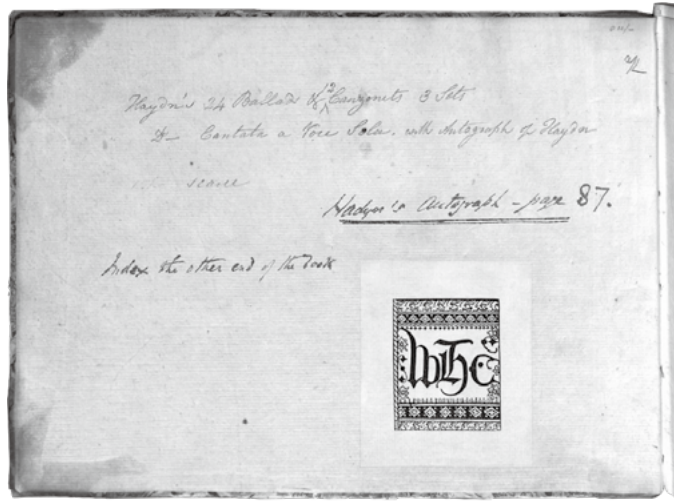 2/
Haydn's 24 Ballads & 12 Canzonets 3 Sets
Do Cantata a Voce Sola. with Autograph of Haydn
scarce
Hadyn's Autograph - page 87.
Index the other end of the book
WHC